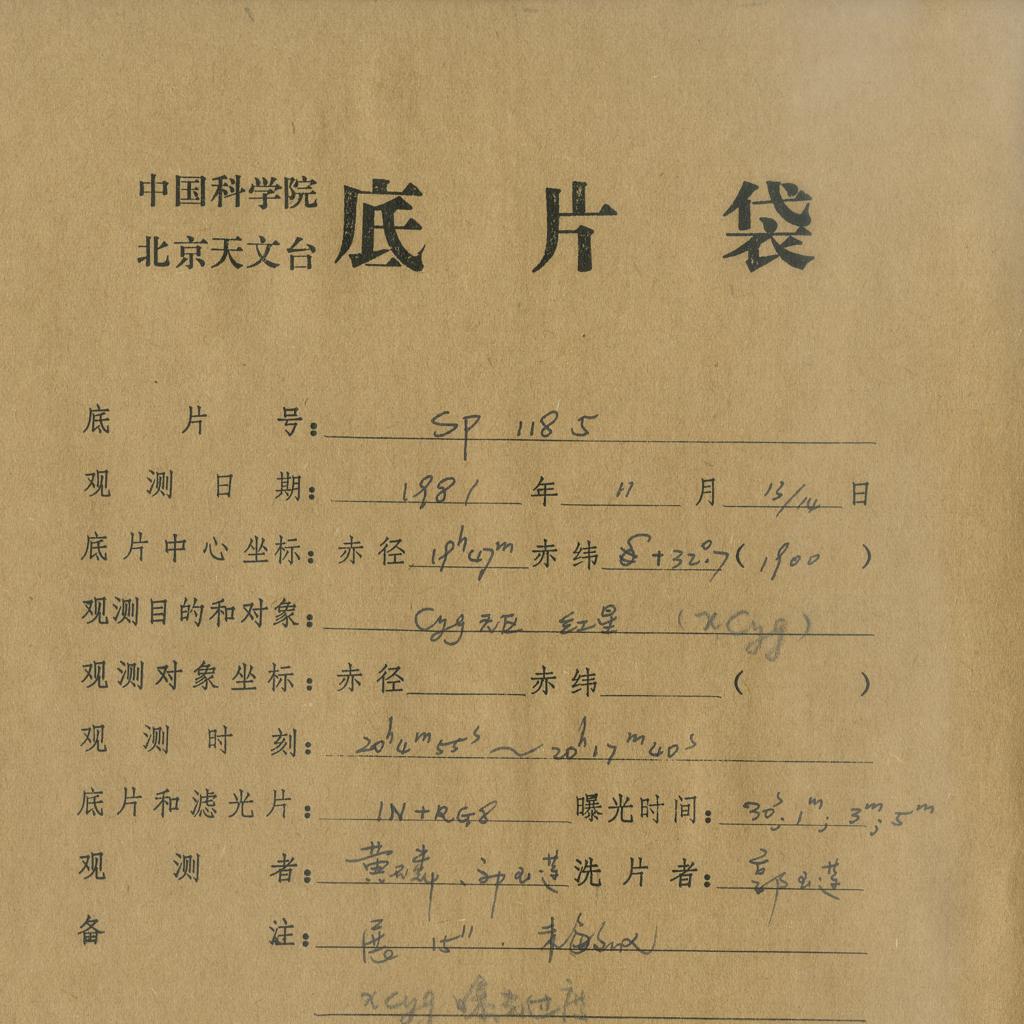 中国科学院
北京天文台 底片袋
底片号： SP 1185
观测日期： 1981 年 11 月 13/14 日
底片中心坐标： 赤径 19h47m 赤纬 δ +32°.7 ( 1900 )
观测目的和对象： Cyg 天区 红星 (χ Cyg)
观测对象坐标： 赤径 赤纬 ( )
观测时刻： 20h4m55s ～ 20h17m40s
底片和滤光片： IN+RG8 曝光时间： 30s; 1m; 3m; 5m
观测者： 黄 磷、郭玉莲 洗片者： 郭玉莲
备注： 展 15" 未敏化
χ Cyg 曝光过度